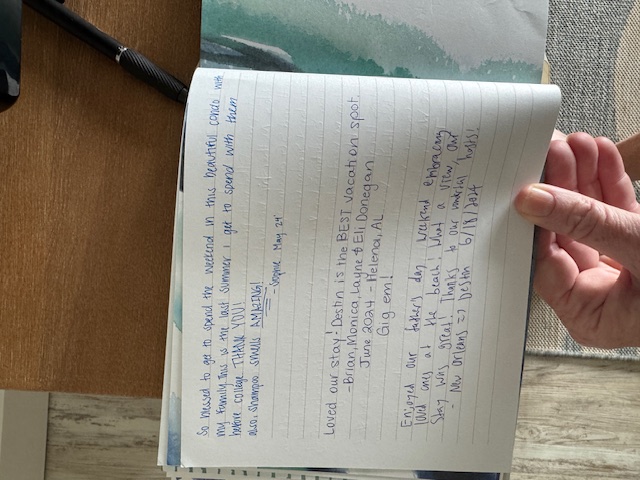 So blessed to get to spend the weekend in this beautiful condo with
my family. This is the last summer I get to spend with them
before college. THANK YOU!
also, shampoo smells AMAZING!
May 24'
Loved our stay! Destin is the BEST vacation spot.
- Brian, Monica, Layne & Eli Donegan
June 2024 - Helena, AL
Gig em!
Enjoyed our father's day weekend embracing
loved ones at the beach! What a view, our
stay was great! Thanks to our hosts!
- New Orleans -> Destin 6/18/2024